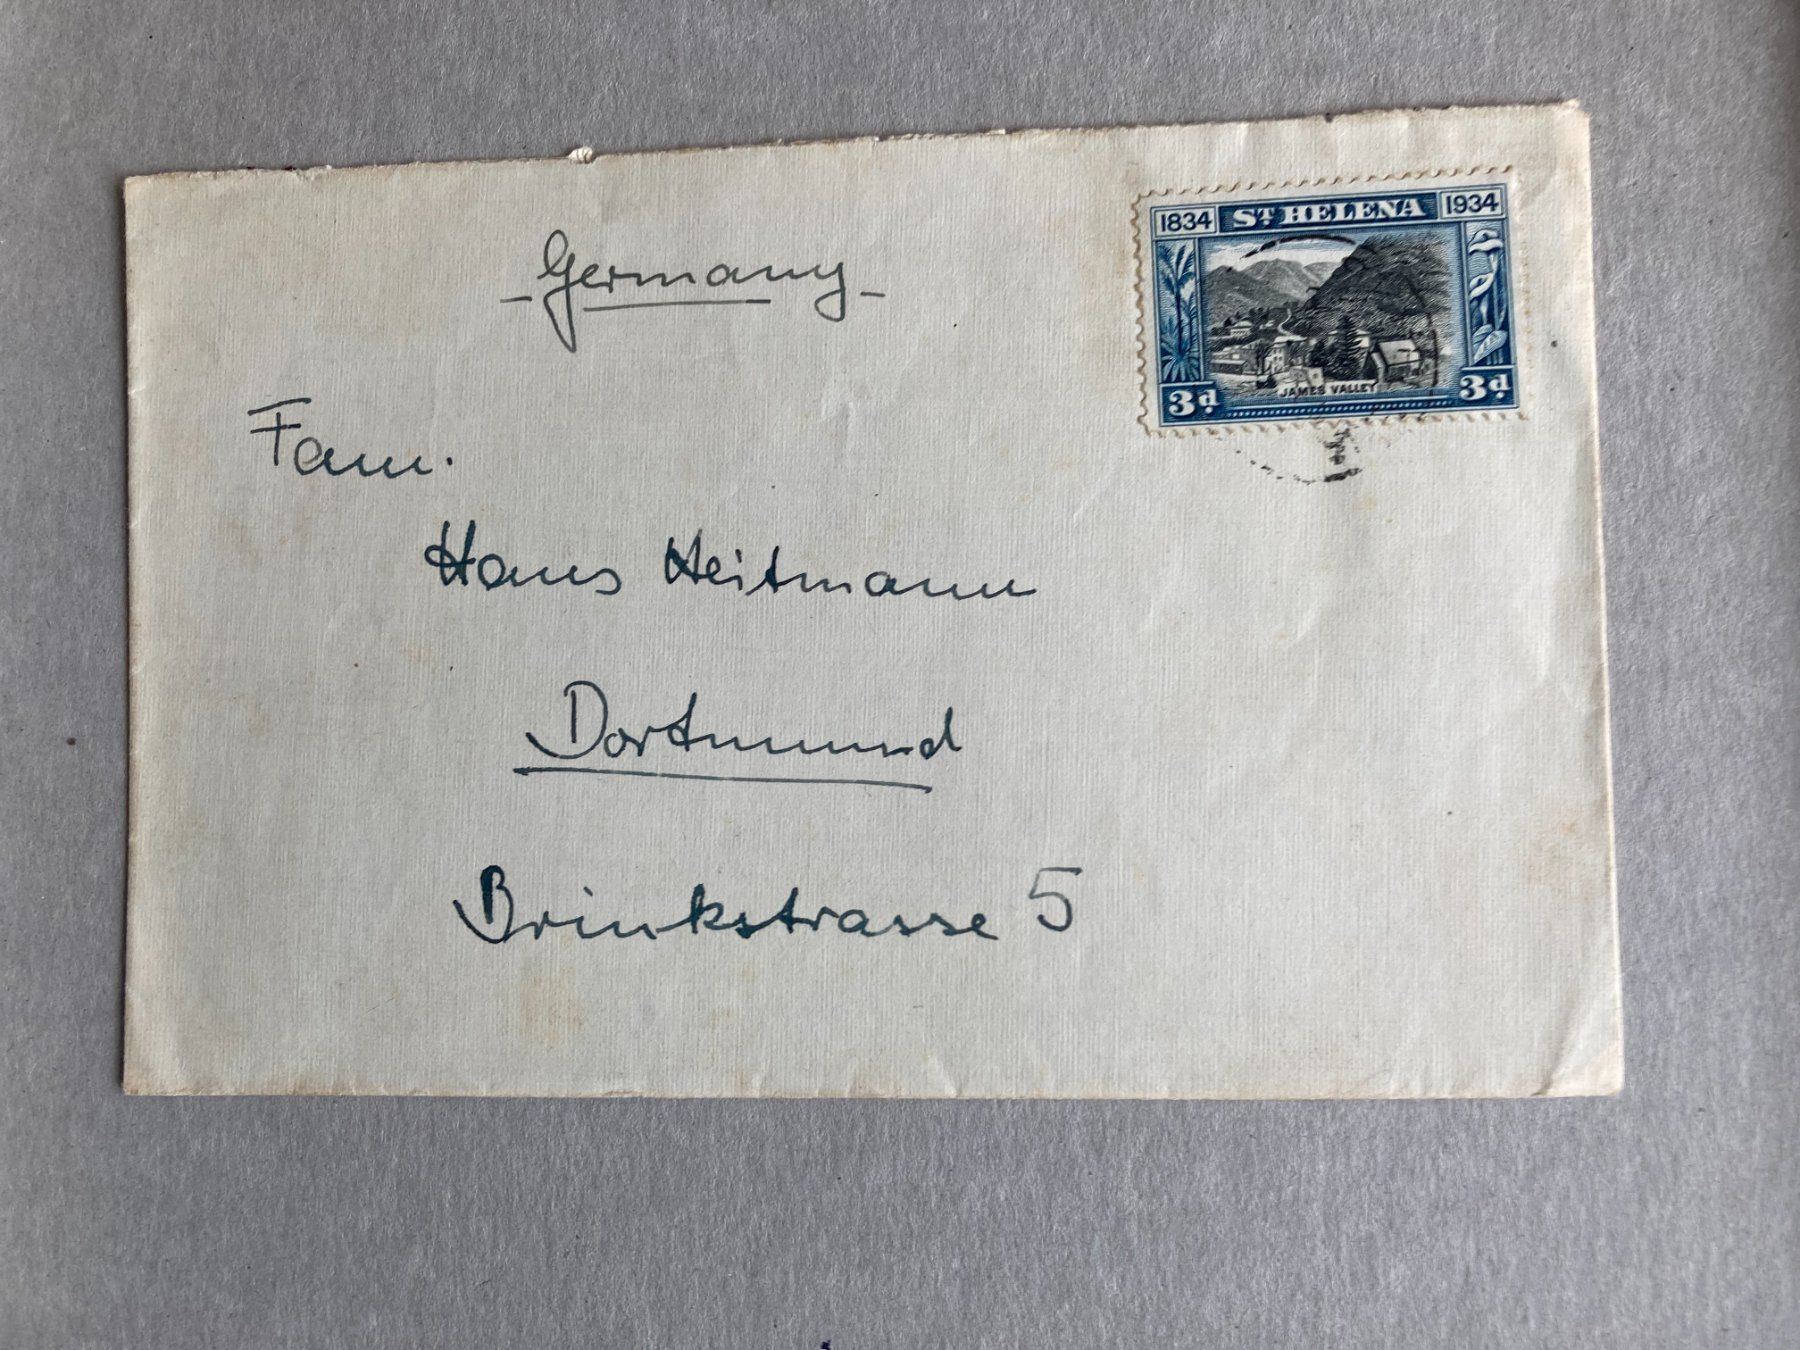 - Germany -
1834 ST HELENA 1934
JAMES VALLEY
3d 3d
Fam.
Hans Heitmann
Dortmund
Brinkstrasse 5